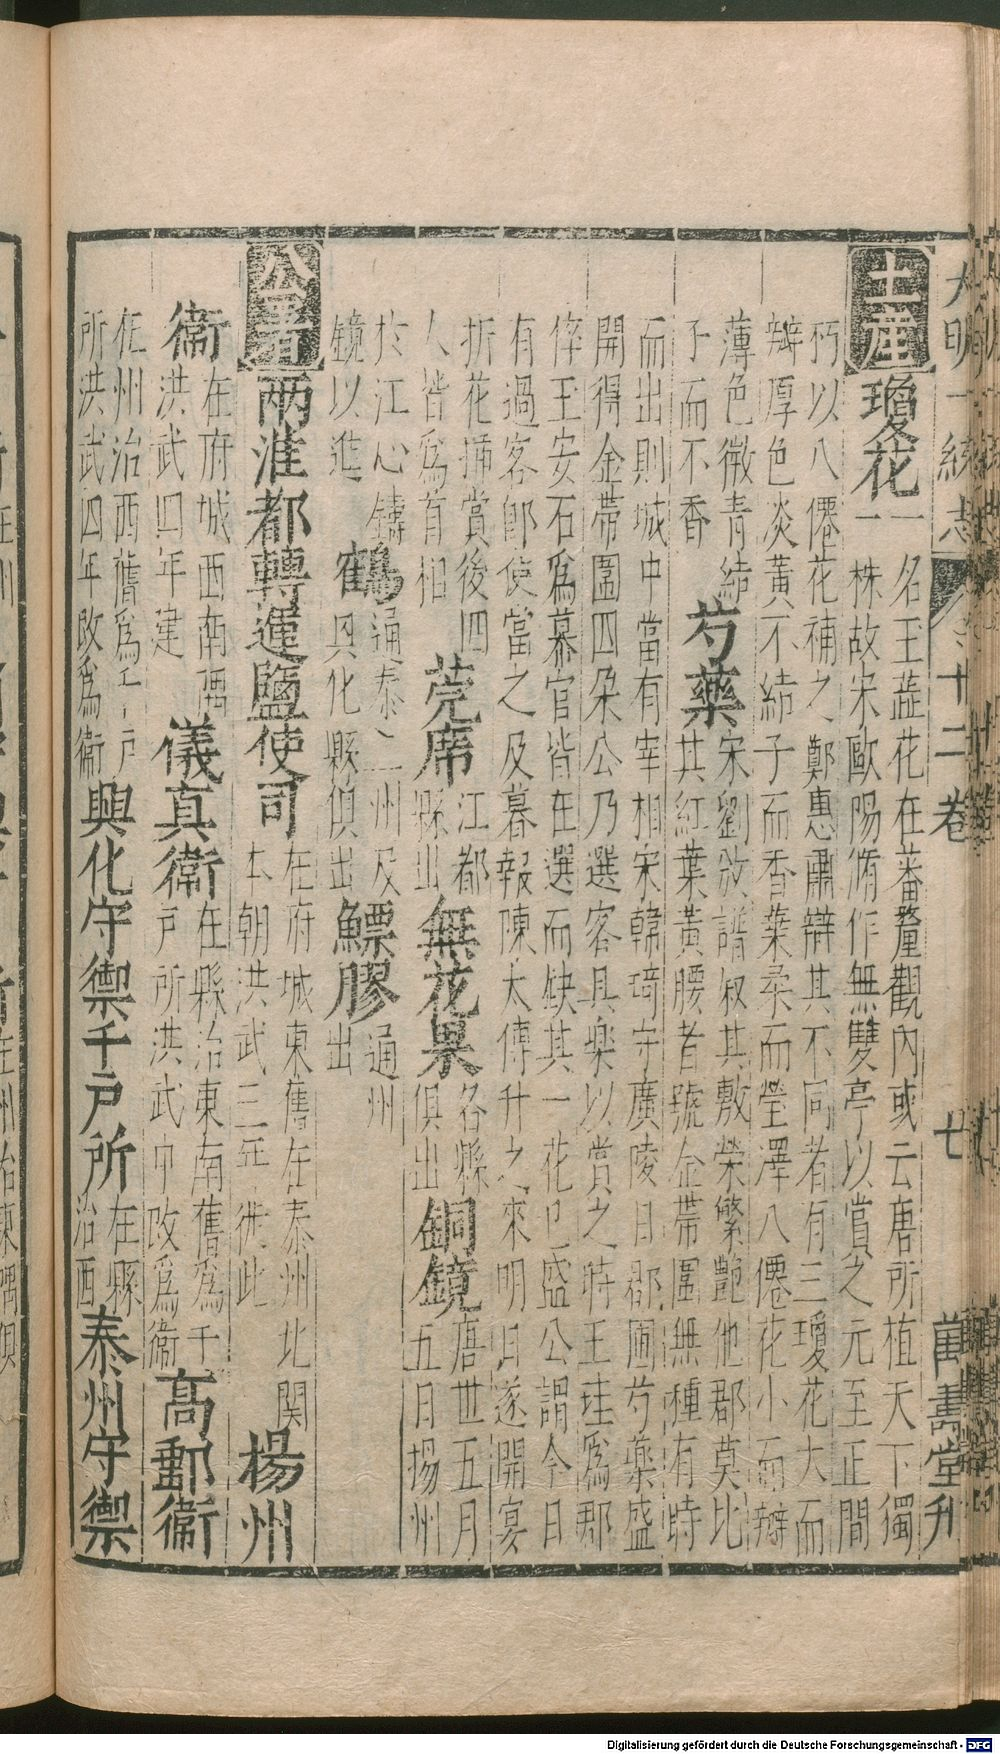 大明一統志 卷十二 七 萬壽堂刋
土產 瓊花一名玉蘂花在蕃釐觀內或云唐所植天下獨
一株故宋歐陽脩作無雙亭以賞之元至正間
朽以八僊花補之鄭惠肅辯其不同者有三瓊花大而
瓣厚色淡黃不結子而香葉柔而瑩澤八僊花小而瓣
薄色微青結
子而不香
芍藥
宋劉攽譜叙其敷榮繁艷他郡莫比
其紅葉黃腰者號金帶圍無種有時
而出則城中當有宰相宋韓琦守廣陵日郡圃芍藥盛
開得金帶圍四朶公乃選客具樂以賞之時王珪爲郡
倅王安石爲幕官皆在選而缺其一花已盛公謂今日
有過客卽使當之及暮報陳太傅升之來明日遂開宴
折花揷賞後四
人皆爲首相
莞席
江都
縣出
無花果
各縣
俱出
銅鏡
唐世五月
五日揚州
於江心鑄
鏡以進
鶴
通泰二州及
興化縣俱出
鰾膠
通州
出
公署 兩淮都轉運鹽使司
在府城東舊在泰州北関
本朝洪武三年徙此
楊州
衞
在府城西南隅
洪武四年建
儀真衞
在縣治東南舊爲千
戶所洪武中改爲衞
高郵衞
在州治西舊爲千戶
所洪武四年改爲衞
興化守禦千戶所
在縣
治西
泰州守禦